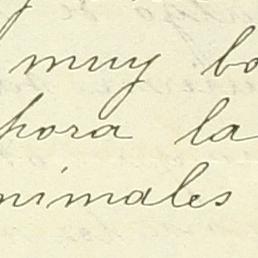 muy bo
hora la
nimales